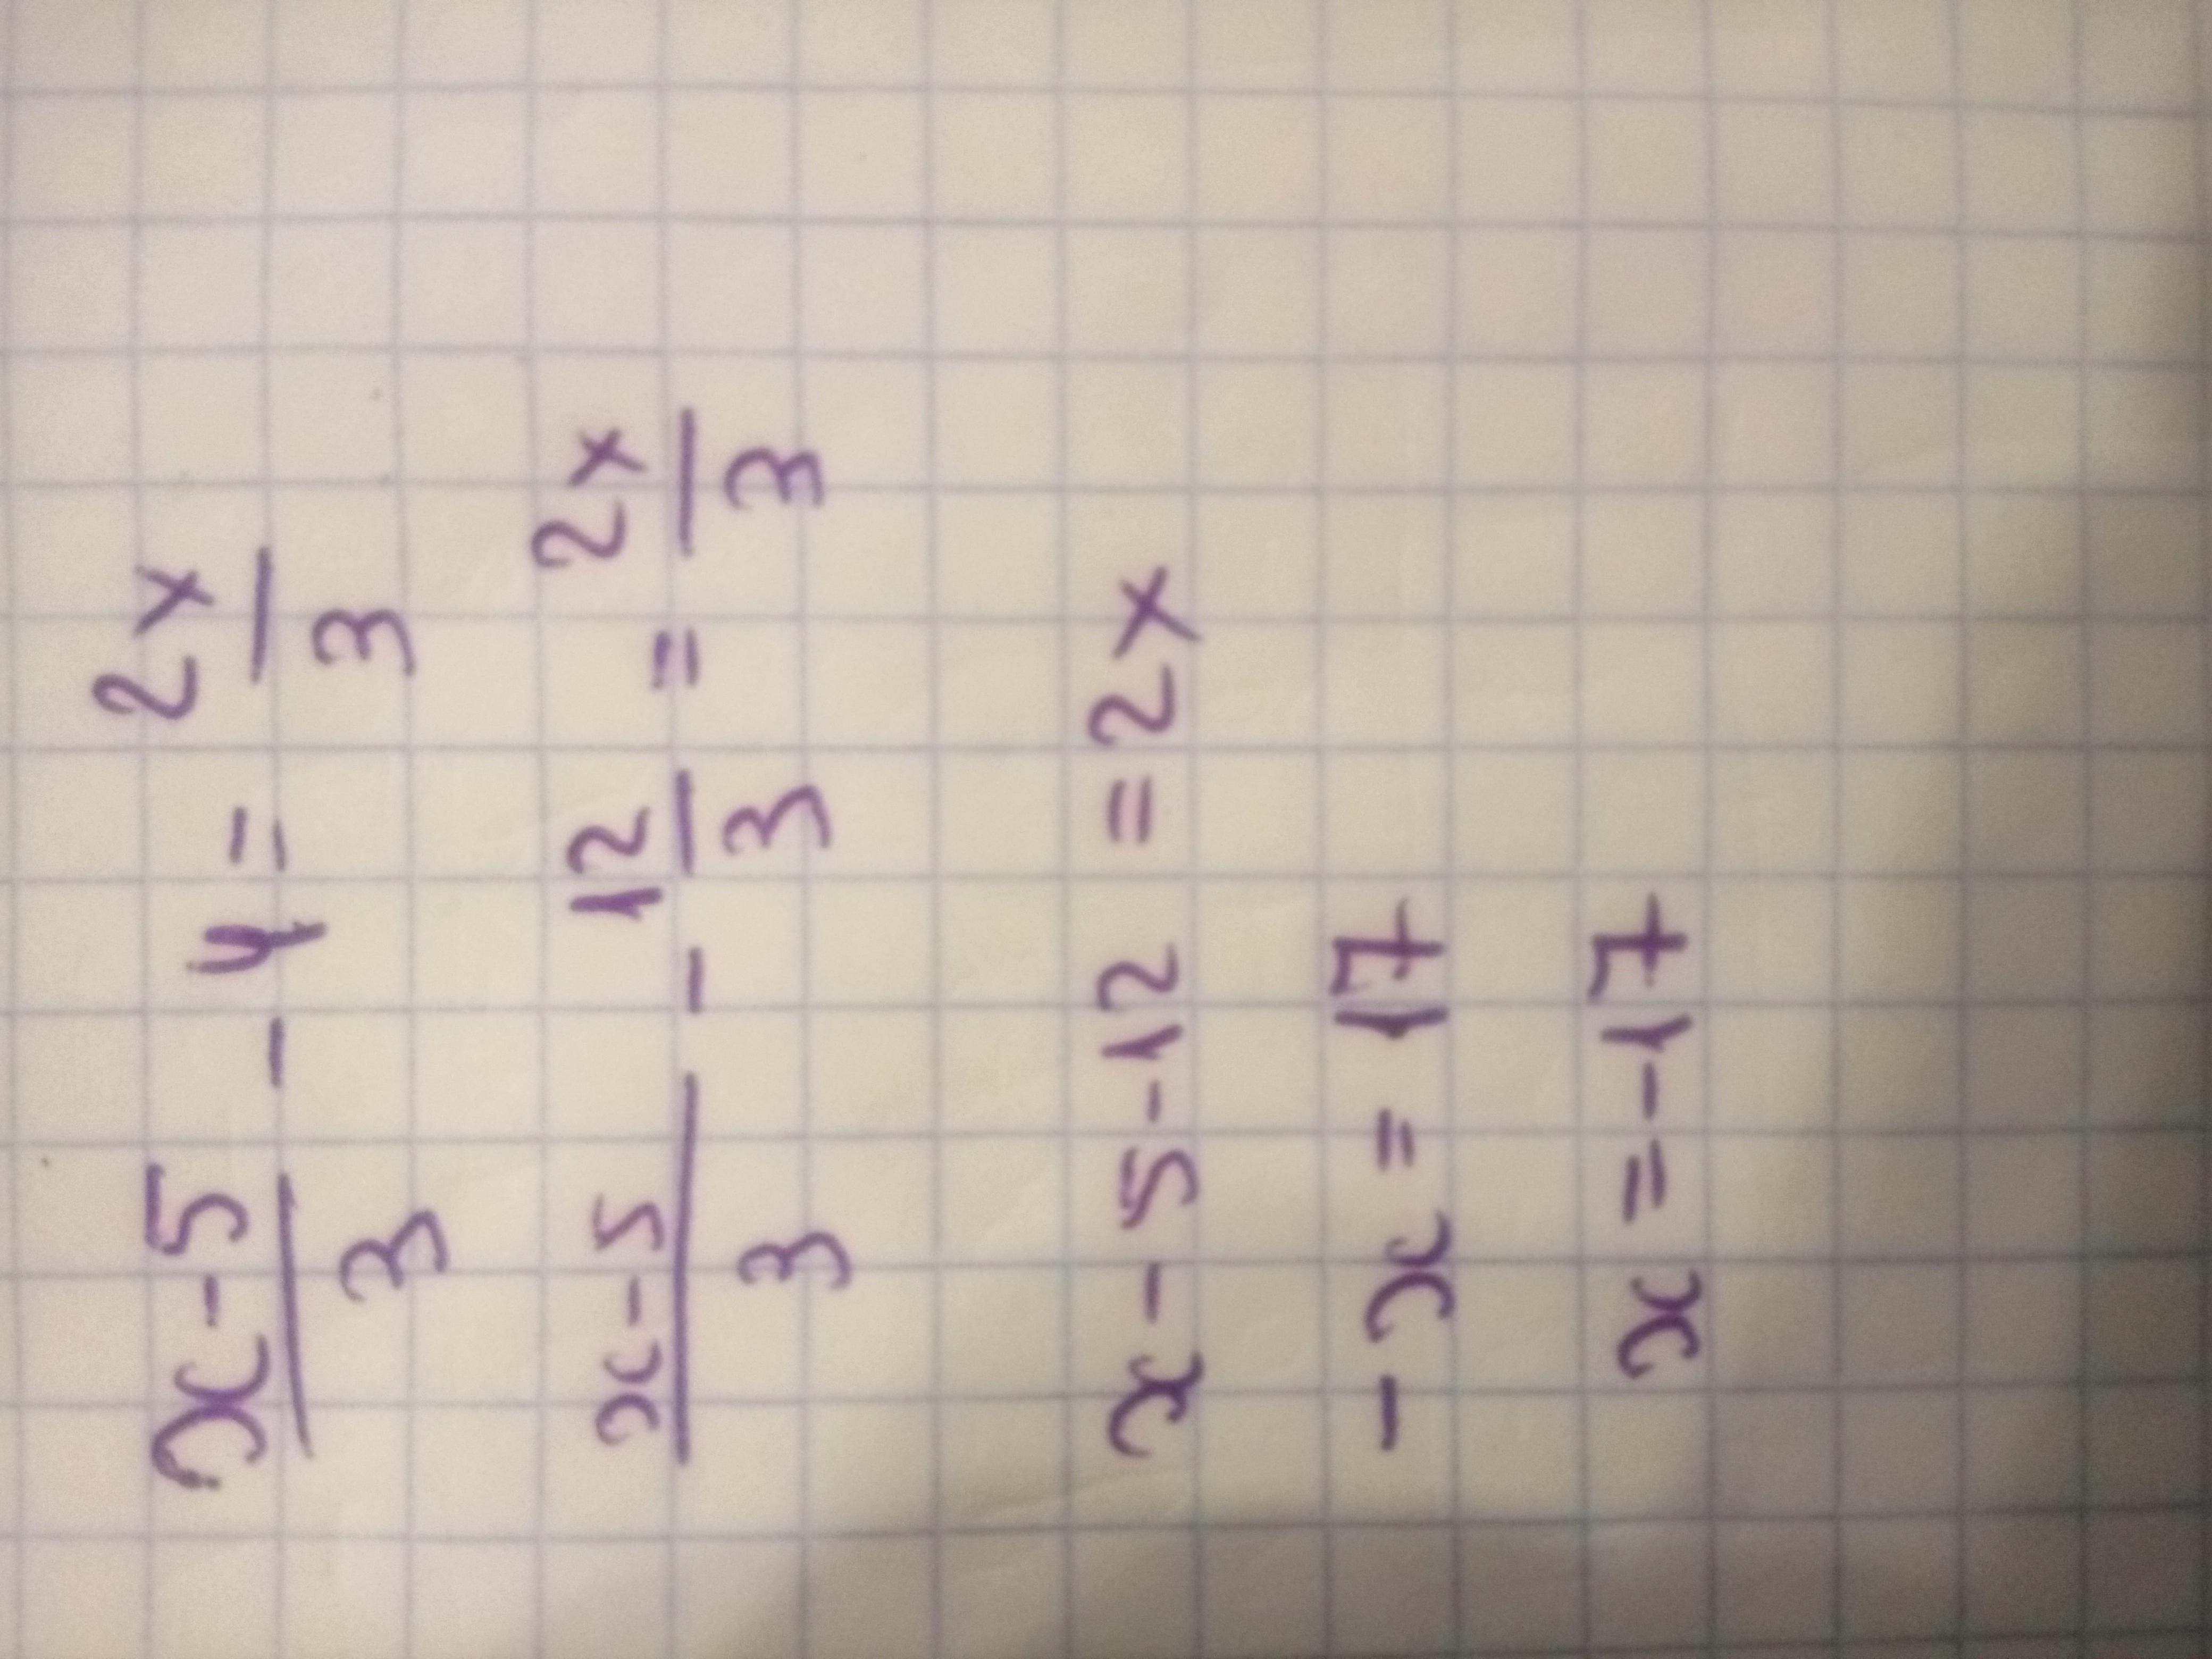 (x-5)/3 - 4 = 2x/3
(x-5)/3 - 12/3 = 2x/3
x-5-12 = 2x
-x = 17
x = -17